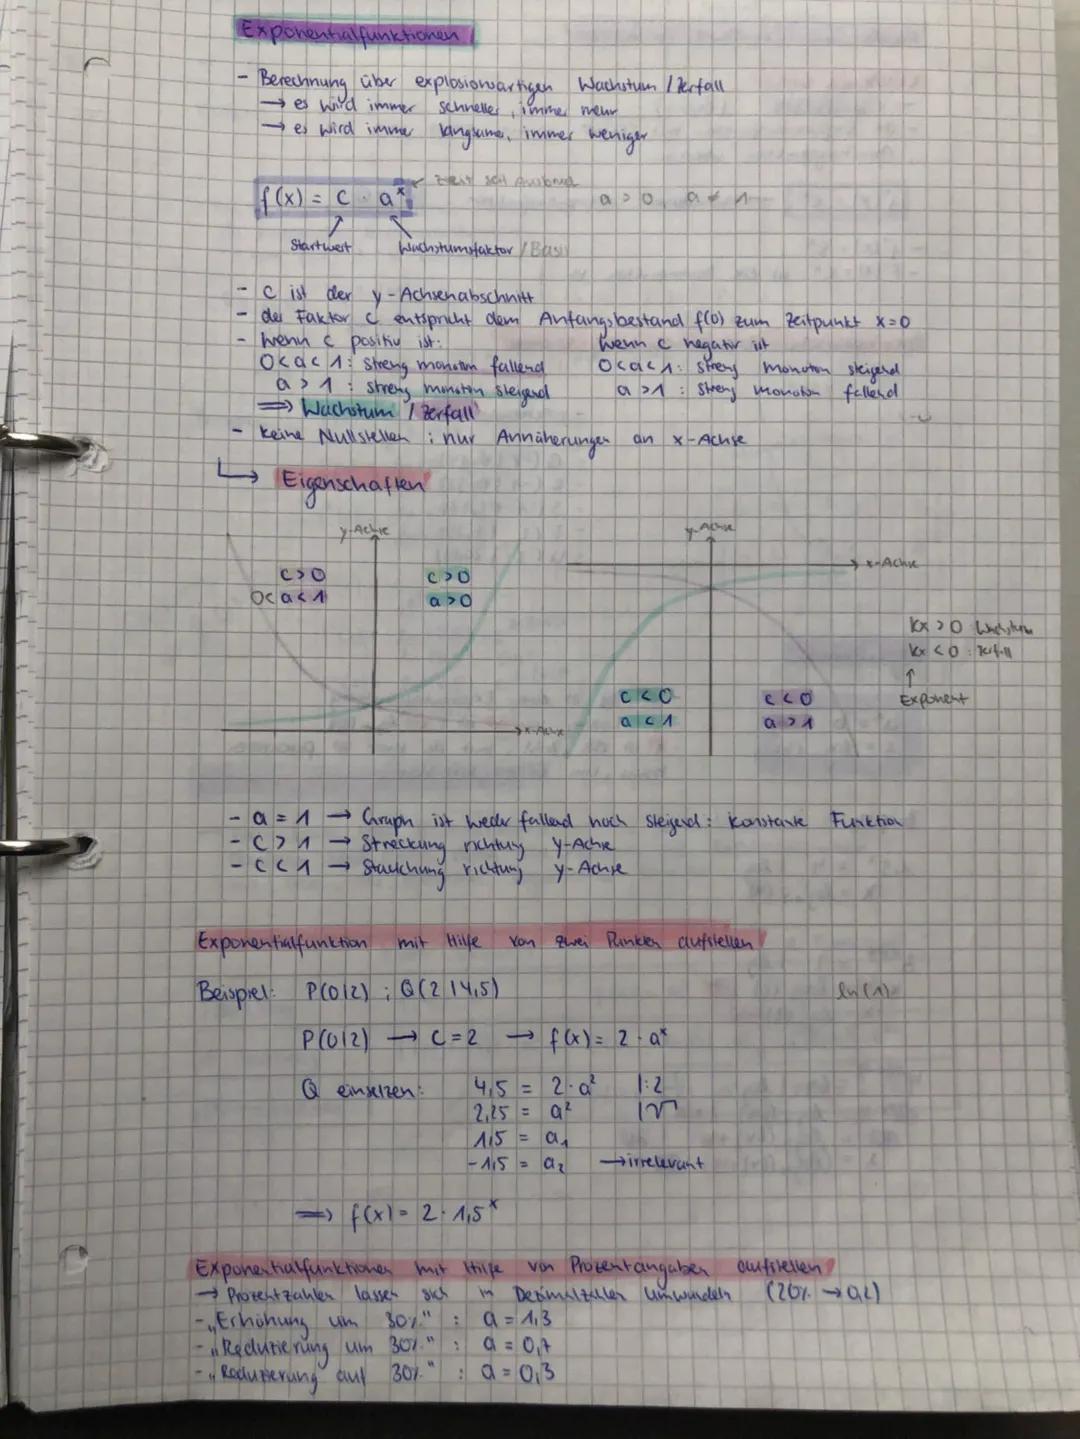 Exponentialfunktionen
- Berechnung über explosionsartigen Wachstum / Zerfall
→ es wird immer schneller, immer mehr
→ es wird immer langsame, immer weniger
Zeit seit Ausbruch
f(x) = c · aˣ
a > 0, a ≠ 1
Startwert
Wachstumsfaktor / Basis
- c ist der y-Achsenabschnitt
- der Faktor c entspricht dem Anfangsbestand f(0) zum Zeitpunkt x=0
- wenn c positiv ist: wenn c negativ ist
0<a<1: streng monoton fallend 0<a<1: streng monoton steigend
a > 1 : streng monoton steigend a >1 : streng monoton fallend
⇒ Wachstum / Zerfall
- keine Nullstellen ; nur Annäherungen an x-Achse
↳ Eigenschaften
y-Achse y-Achse
x-Achse
c>0 c>0
0< a<1 a>0
kx > 0 Wachstum
kx < 0 : Zerfall
↑
Exponent
c < 0 c < 0
a < 1 a > 1
x-Achse
- a = 1 → Graph ist weder fallend noch steigend: konstante Funktion
- c > 1 → Streckung richtung y-Achse
- c < 1 → Stauchung richtung y-Achse
Exponentialfunktion mit Hilfe von zwei Punkten aufstellen
Beispiel: P(0|2) ; Q(2|4,5)
ln(1)
P(0|2) → c = 2 → f(x) = 2 · aˣ
Q einsetzen: 4,5 = 2 · a² |:2
2,25 = a² |√
1,5 = a₁
-1,5 = a₂ → irrelevant
⇒ f(x) = 2 · 1,5ˣ
Exponentialfunktionen mit Hilfe von Prozentangaben aufstellen
→ Prozentzahlen lassen sich in Dezimalzahlen umwandeln (20% → 0,2)
- „Erhöhung um 30%" : a = 1,3
- „Reduzierung um 30%" : a = 0,7
- „Reduzierung auf 30%" : a = 0,3